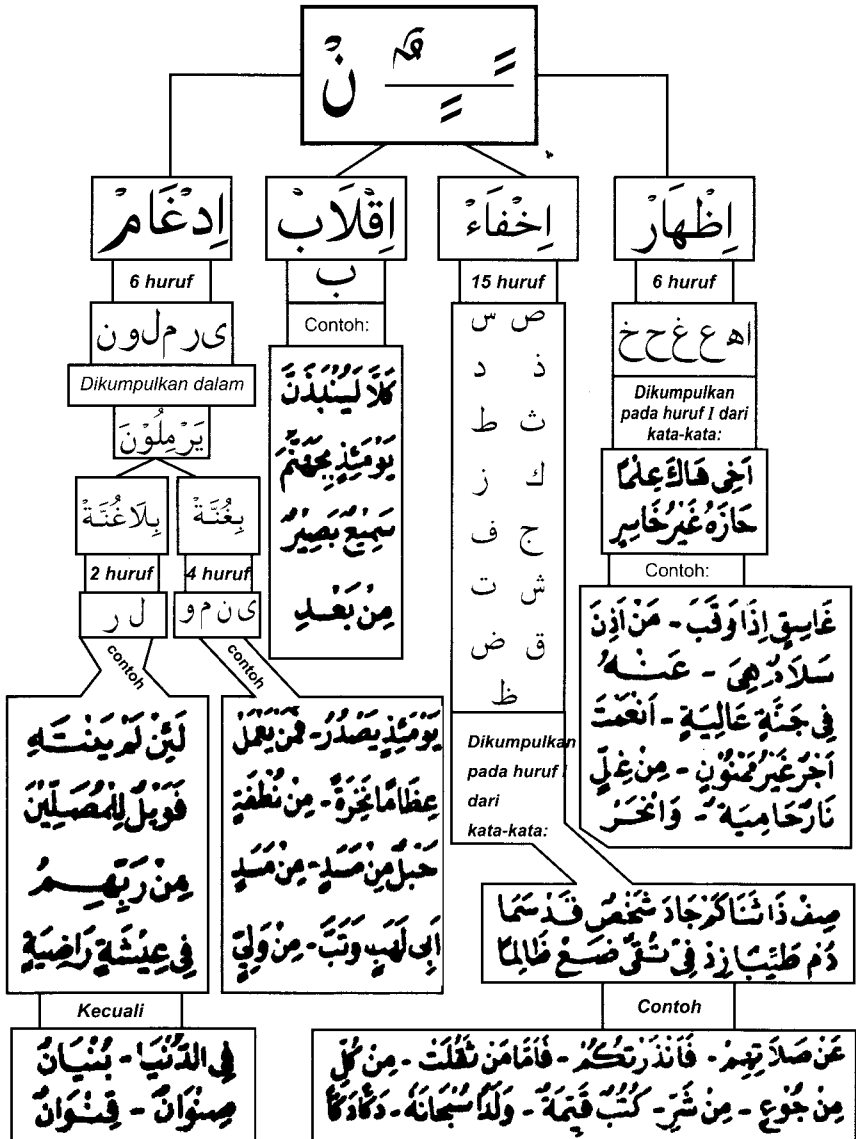 نْ ـًـٍـٌ
اِظْهَارْ
6 huruf
ا ه ع غ ح خ
Dikumpulkan
pada huruf I dari
kata-kata:
اَخِى هَاكَ عِلْمًا
حَازَهُ غَيْرُ خَاسِرٍ
Contoh:
غَاسِقٍ اِذَا وَقَبَ - مَنْ اَذِنَ
سَلَامٌ هِيَ - عَنْهُ
فِى جَنَّةٍ عَالِيَةٍ - اَنْعَمْتَ
اَجْرٌ غَيْرُ مَمْنُوْنٍ - مِنْ غِلٍّ
نَارٌ حَامِيَةٌ - وَانْحَرْ
اِخْفَاءْ
15 huruf
ص س
ذ د
ث ط
ك ز
ج ف
ش ت
ق ض
ظ
Dikumpulkan
pada huruf I
dari
kata-kata:
صِفْ ذَا ثَنَا كَمْ جَادَ شَخْصٌ قَدْ سَمَا
دُمْ طَيِّبًا زِدْ فِيْ تُقًى ضَعْ ظَالِمًا
Contoh
عَنْ صَلَاتِهِمْ - فَاَنْذَرْتُكُمْ - فَاَمَّا مَنْ ثَقُلَتْ - مِنْ كُلِّ
مِنْ جُوْعٍ - مِنْ شَرِّ - كُتُبٌ قَيِّمَةٌ - وَلَدًا سُبْحَانَهُ - دَكًّا دَكًّا
اِقْلَابْ
ب
Contoh:
كَلَّا لَيُنْبَذَنَّ
يَوْمَئِذٍ بِجَهَنَّمَ
سَمِيْعٌ بَصِيْرٌ
مِنْ بَعْدِ
اِدْغَامْ
6 huruf
ى ر م ل و ن
Dikumpulkan dalam
يَرْمِلُوْنَ
بِغُنَّةْ
4 huruf
ى ن م و
contoh
يَوْمَئِذٍ يَصْدُرُ - فَمَنْ يَعْمَلْ
عِظَامًا نَخِرَةً - مِنْ نُطْفَةٍ
حَبْلٌ مِنْ مَسَدٍ - مِنْ مَسَدٍ
اَبِى لَهَبٍ وَتَبَّ - مِنْ وَلِيٍّ
بِلَاغُنَّةْ
2 huruf
ل ر
contoh
لَئِنْ لَمْ يَنْتَهِ
فَوَيْلٌ لِلْمُصَلِّيْنَ
مِنْ رَبِّهِمْ
فِى عِيْشَةٍ رَاضِيَةٍ
Kecuali
فِى الدُّنْيَا - بُنْيَانٌ
صِنْوَانٌ - قِنْوَانٌ